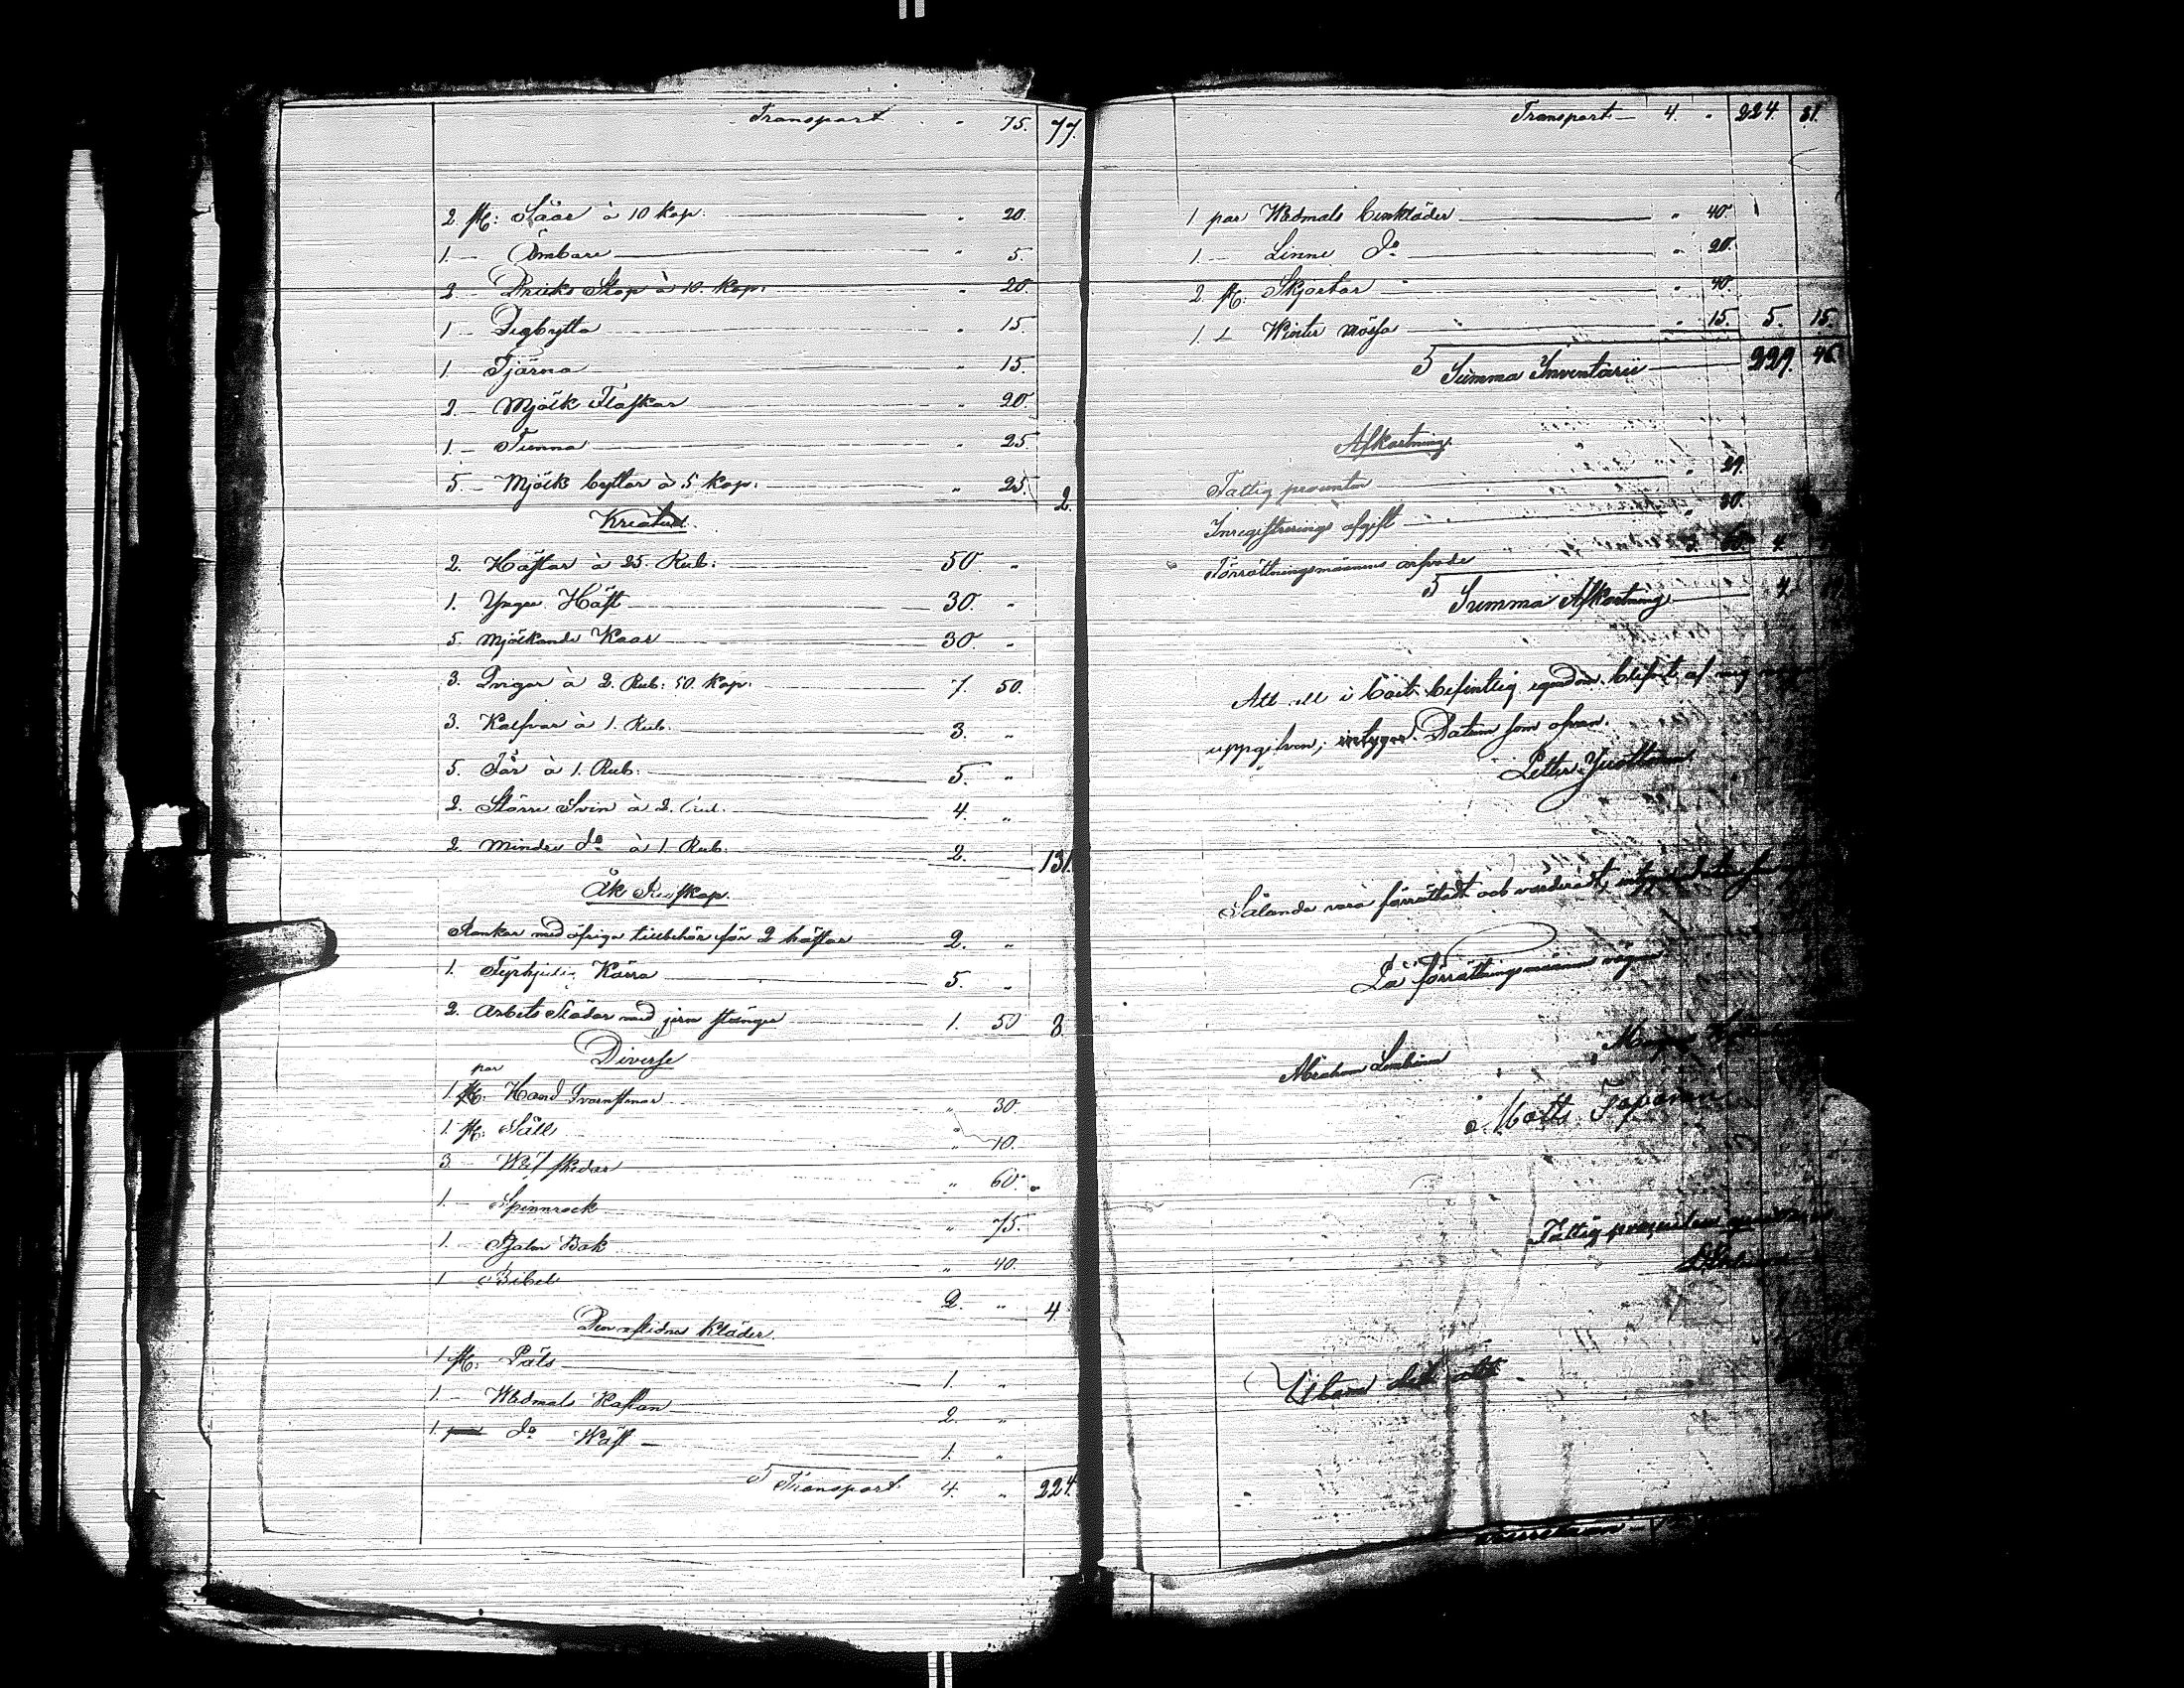 Transport " 75. 77.
2 st: Såar à 10 kop. " 20.
1. — Ämbare " 5.
2 — Dricks Stop à 10. kop. " 20.
1 — Degbytta " 15.
1. — Tjärna " 15.
2. — Mjölk Flaskor " 20.
1. — Tunna " 25
5. — Mjölk byttor à 5 kop. " 25. 2.
Kreatur.
2. Hästar à 25. Rub: 50. "
1. Yngre Häst 30. "
5. Mjölkande Koor 30. "
3. Qvigor à 2. Rub: 50. kop. 7. 50.
3. Kalfvar à 1. Rub. 3. "
5. Får à 1. Rub. 5. "
2. Större Svin à 2. Rub. 4. "
2. Mindre do à 1 Rub. 2. 131
Åk Redskap.
Rankor med öfriga tillbehör för 2 hästar 2. "
1. Fyrhjulig Kärra 5. "
2. Arbets Slädar med jern stänger 1. 50 8.
Diverse
1. par Hand Qvarnstenar " 30.
1. st: Såll " 10.
3. — Wäf skedar " 60.
1. — Spinnrock " 75.
1. — Psalm Bok " 40.
1 — Bibel 2. " 4.
Den aflidnes kläder.
1 st: Päls 1. "
1. — Wadmals Kaftan 2. "
1. do Wäst — 1. "
Transport 4. " 224.
Transport — 4. " 224. 31.
1 par Wadmals benkläder " 40.
1 — Linne do " 20.
2. st: Skjortor " 40
1. — Winter mössa " 15. 5. 15.
Summa Inventarii 229. 46.
Afkortning.
Fattig procenter " 29.
Inregistrerings afgift " 30.
Förrättningsmännens arfvode 60. 4.
Summa Afkortning 4.
Att all i boet befintlig egendom blifvit af mig
uppgifven, intygar. Datum som ofvan.
Petter
Sålunda vara förrättadt och värderadt,
På förrättningsmännens vägnar
Abraham
Matts
Fattig procenten
Utan